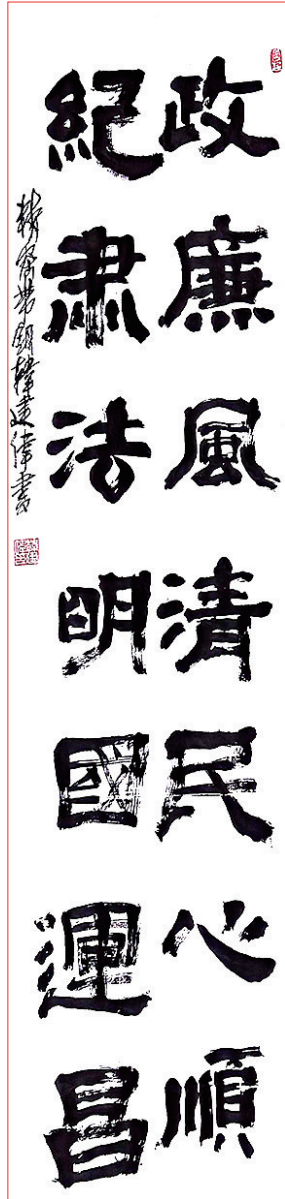 政廉風清民心順
紀肅法明國運昌
韓建偉書